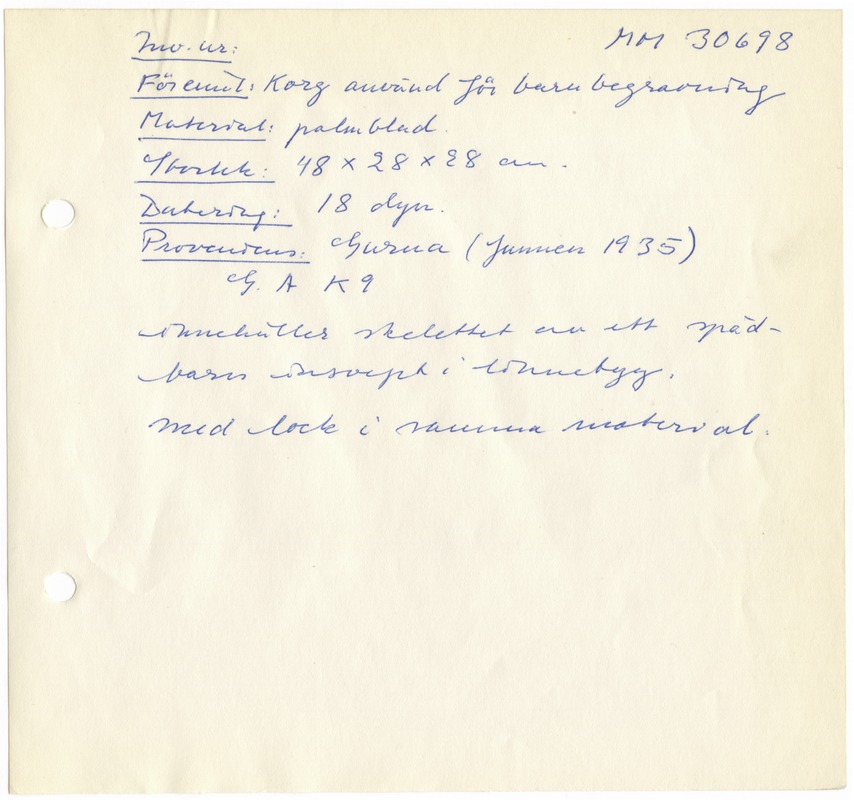 Inv.nr: MM 30698
Föremål: Korg använd för barnbegravning
Material: palmblad.
Storlek: 48 x 28 x 28 cm.
Datering: 18 dyn.
Proveniens: Gurna (funnen 1935)
G. A K9
innehåller skelettet av ett späd-
barn insvept i linnetyg.
med lock i samma material.